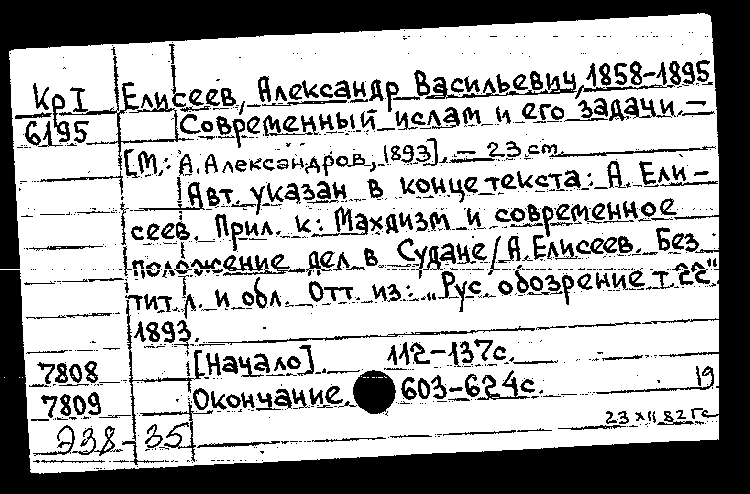 КрI Елисеев, Александр Васильевич, 1858-1895
6195 Современный ислам и его задачи. —
[М.: А. Александров, 1893]. — 23 см.
Авт. указан в конце текста: А. Ели-
сеев. Прил. к: Махдизм и современное
положение дел в Судане/А. Елисеев. Без
тит. л. и обл. Отт. из: „Рус. обозрение т. 22".
1893.
7808 [Начало]. 112-137с.
7809 Окончание. 603-624с. 19
938-35 23 XII 82 Гс